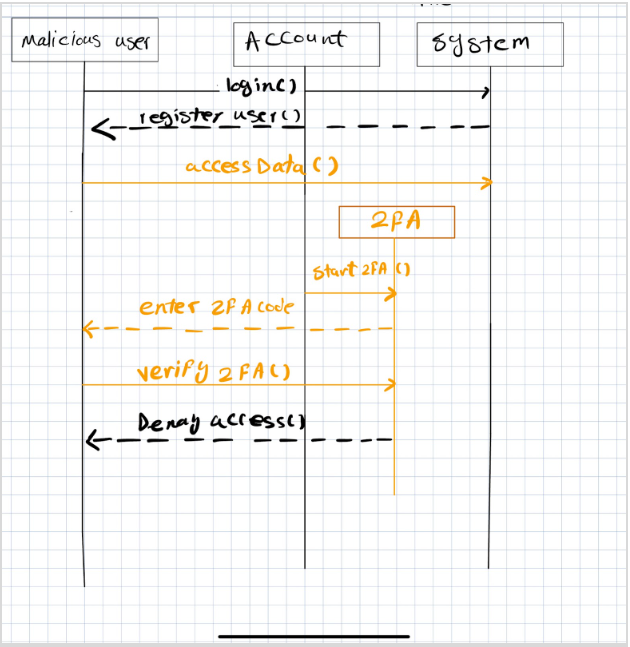 Malicious user
Account
System
login()
register user()
accessData()
2FA
Start 2FA ()
enter 2FA code
verify 2FA()
Denay access()